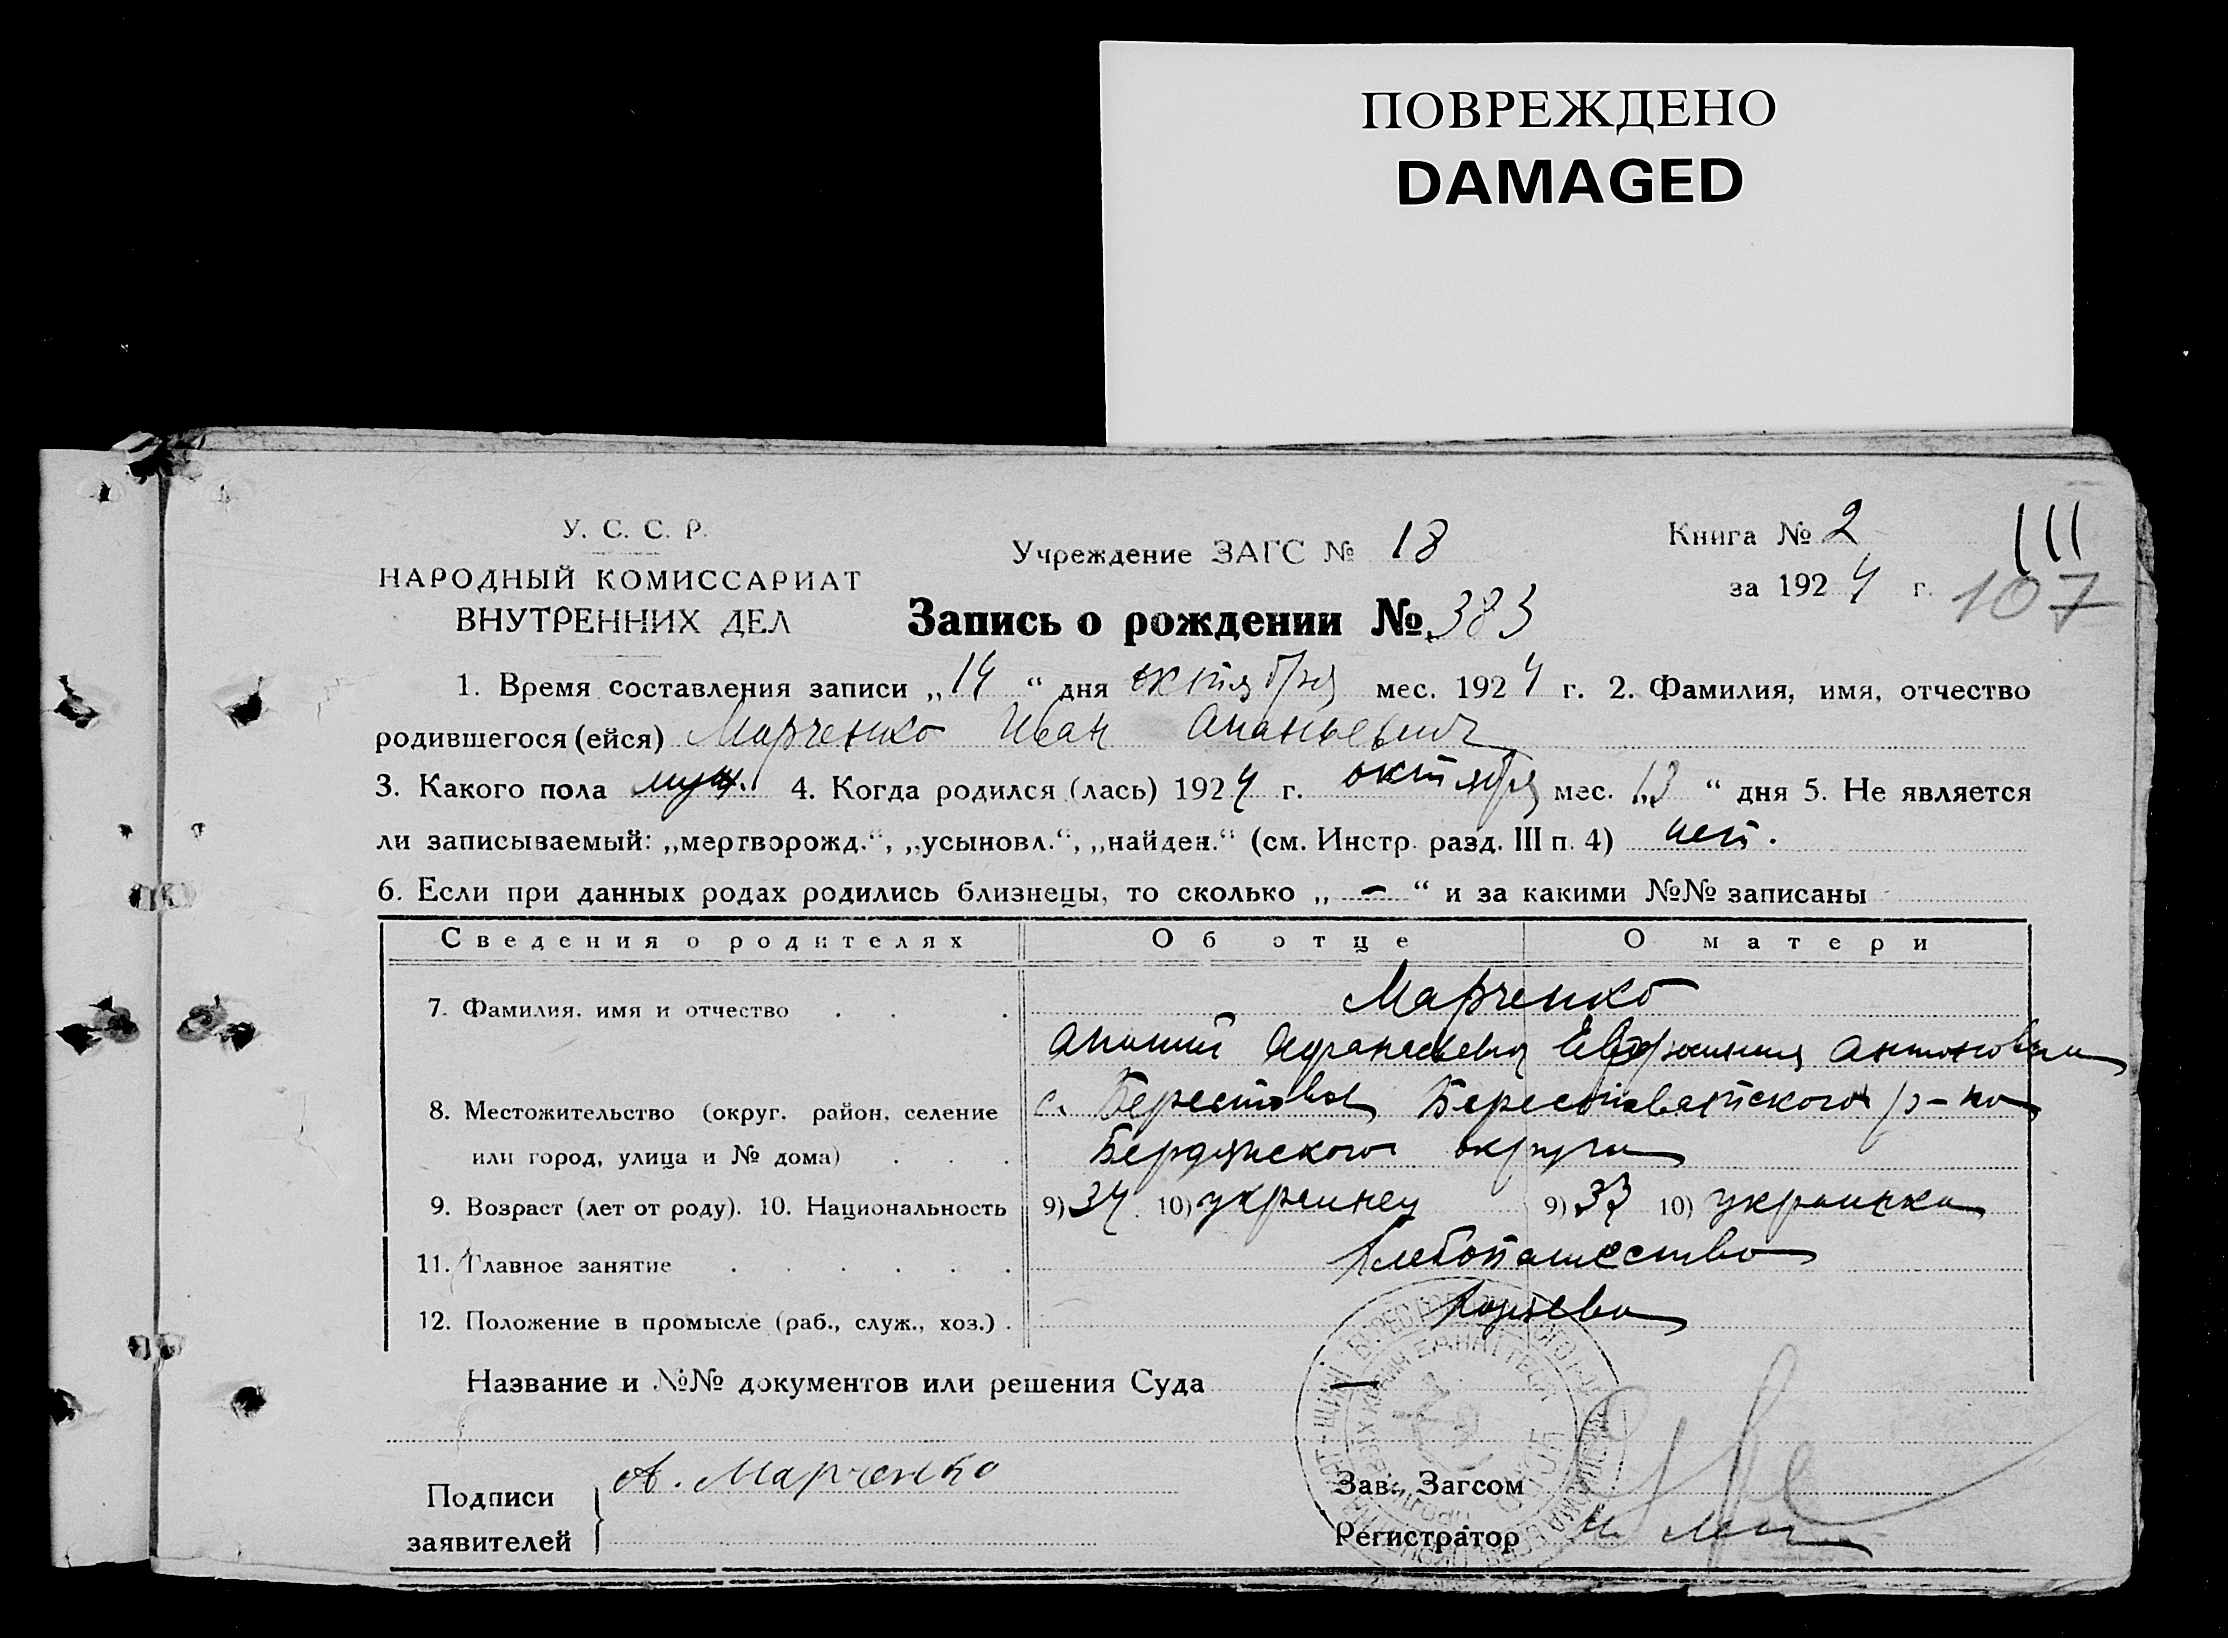 ПОВРЕЖДЕНО
DAMAGED
У. С. С. Р.
НАРОДНЫЙ КОМИССАРИАТ
ВНУТРЕННИХ ДЕЛ
Учреждение ЗАГС № 18
Книга № 2
за 1924 г.
111
107
Запись о рождении № 383
1. Время составления записи „14“ дня октября мес. 1924 г. 2. Фамилия, имя, отчество
родившегося (ейся) Марченко Иван Ананьевич
3. Какого пола муж. 4. Когда родился (лась) 1924 г. октября мес. „13“ дня 5. Не является
ли записываемый: „мертворожд.“, „усыновл.“, „найден.“ (см. Инстр. разд. III п. 4) нет.
6. Если при данных родах родились близнецы, то сколько „ – “ и за какими №№ записаны
Сведения о родителях Об отце О матери
Марченко
7. Фамилия, имя и отчество
Ананий Афанасьевич Евфимия Антоновна
8. Местожительство (округ, район, селение с. Берестовое Берестоватского р-на
или город, улица и № дома) Бердянского округа
9. Возраст (лет от роду). 10. Национальность 9) 34 10) украинец 9) 33 10) украинка
11. Главное занятие Хлебопашество
12. Положение в промысле (раб., служ., хоз.) Хозяева
Название и №№ документов или решения Суда —
Подписи
заявителей
А. Марченко
Зав. Загсом
Регистратор